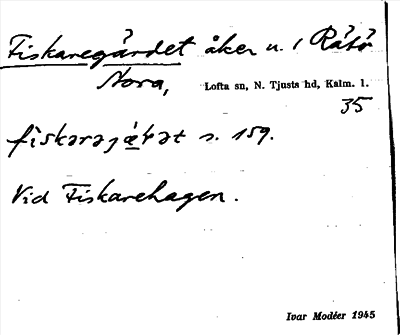 Fiskaregärdet åker u. / Råtö
Norra,
Lofta sn, N. Tjusts hd, Kalm. l.
35
s. 159.
Vid Fiskarehagen.
Ivar Modéer 1945